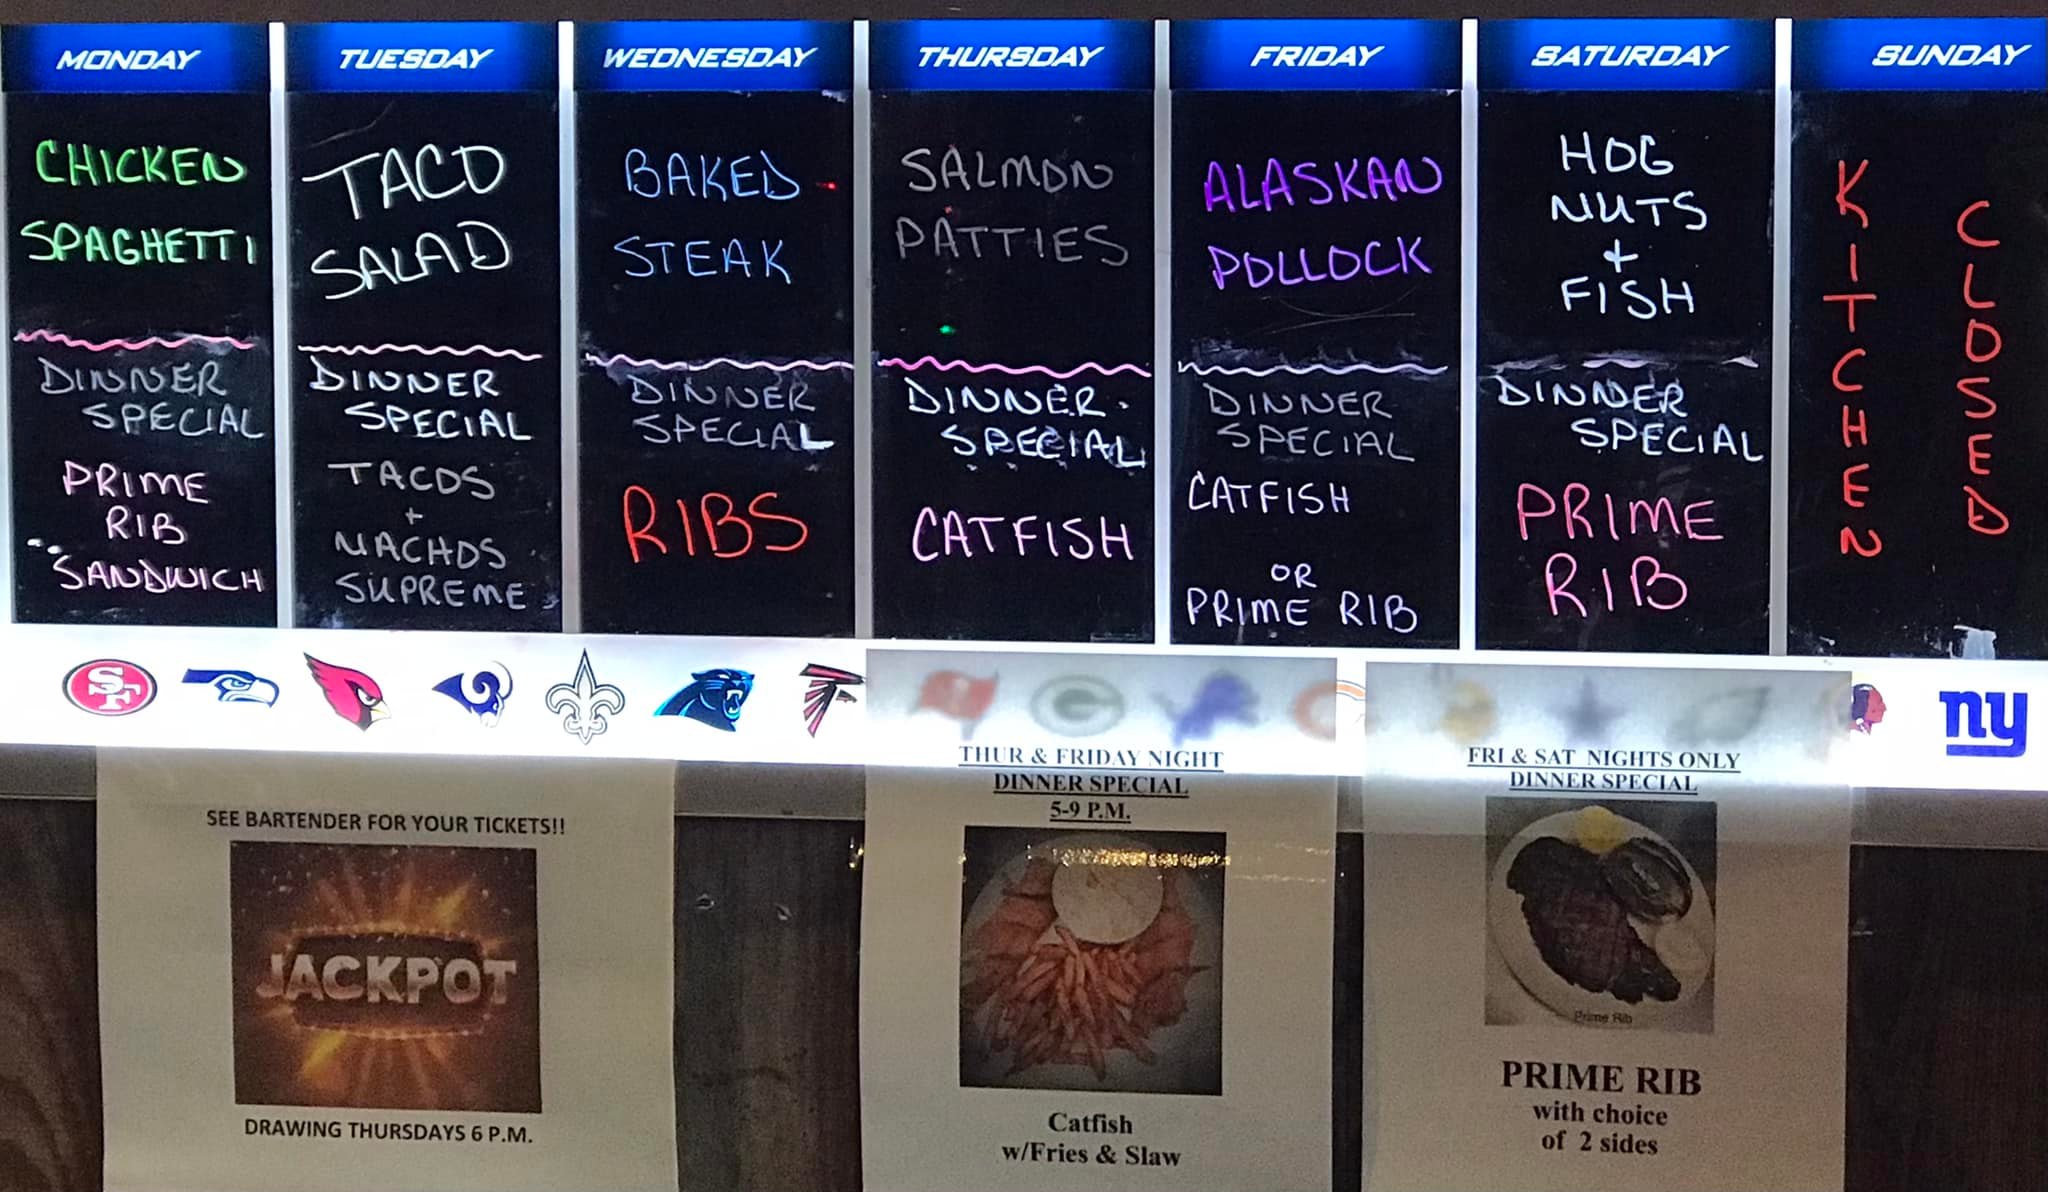 MONDAY
CHICKEN
SPAGHETTI
DINNER
SPECIAL
PRIME
RIB
SANDWICH
TUESDAY
TACO
SALAD
DINNER
SPECIAL
TACOS
+
NACHOS
SUPREME
WEDNESDAY
BAKED
STEAK
DINNER
SPECIAL
RIBS
THURSDAY
SALMON
PATTIES
DINNER
SPECIAL
CATFISH
FRIDAY
ALASKAN
POLLOCK
DINNER
SPECIAL
CATFISH
OR
PRIME RIB
SATURDAY
HOG
NUTS
+
FISH
DINNER
SPECIAL
PRIME
RIB
SUNDAY
KITCHEN
CLOSED
SF
G
C
ny
SEE BARTENDER FOR YOUR TICKETS!!
JACKPOT
DRAWING THURSDAYS 6 P.M.
THUR & FRIDAY NIGHT
DINNER SPECIAL
5-9 P.M.
Catfish
w/Fries & Slaw
FRI & SAT NIGHTS ONLY
DINNER SPECIAL
Prime Rib
PRIME RIB
with choice
of 2 sides